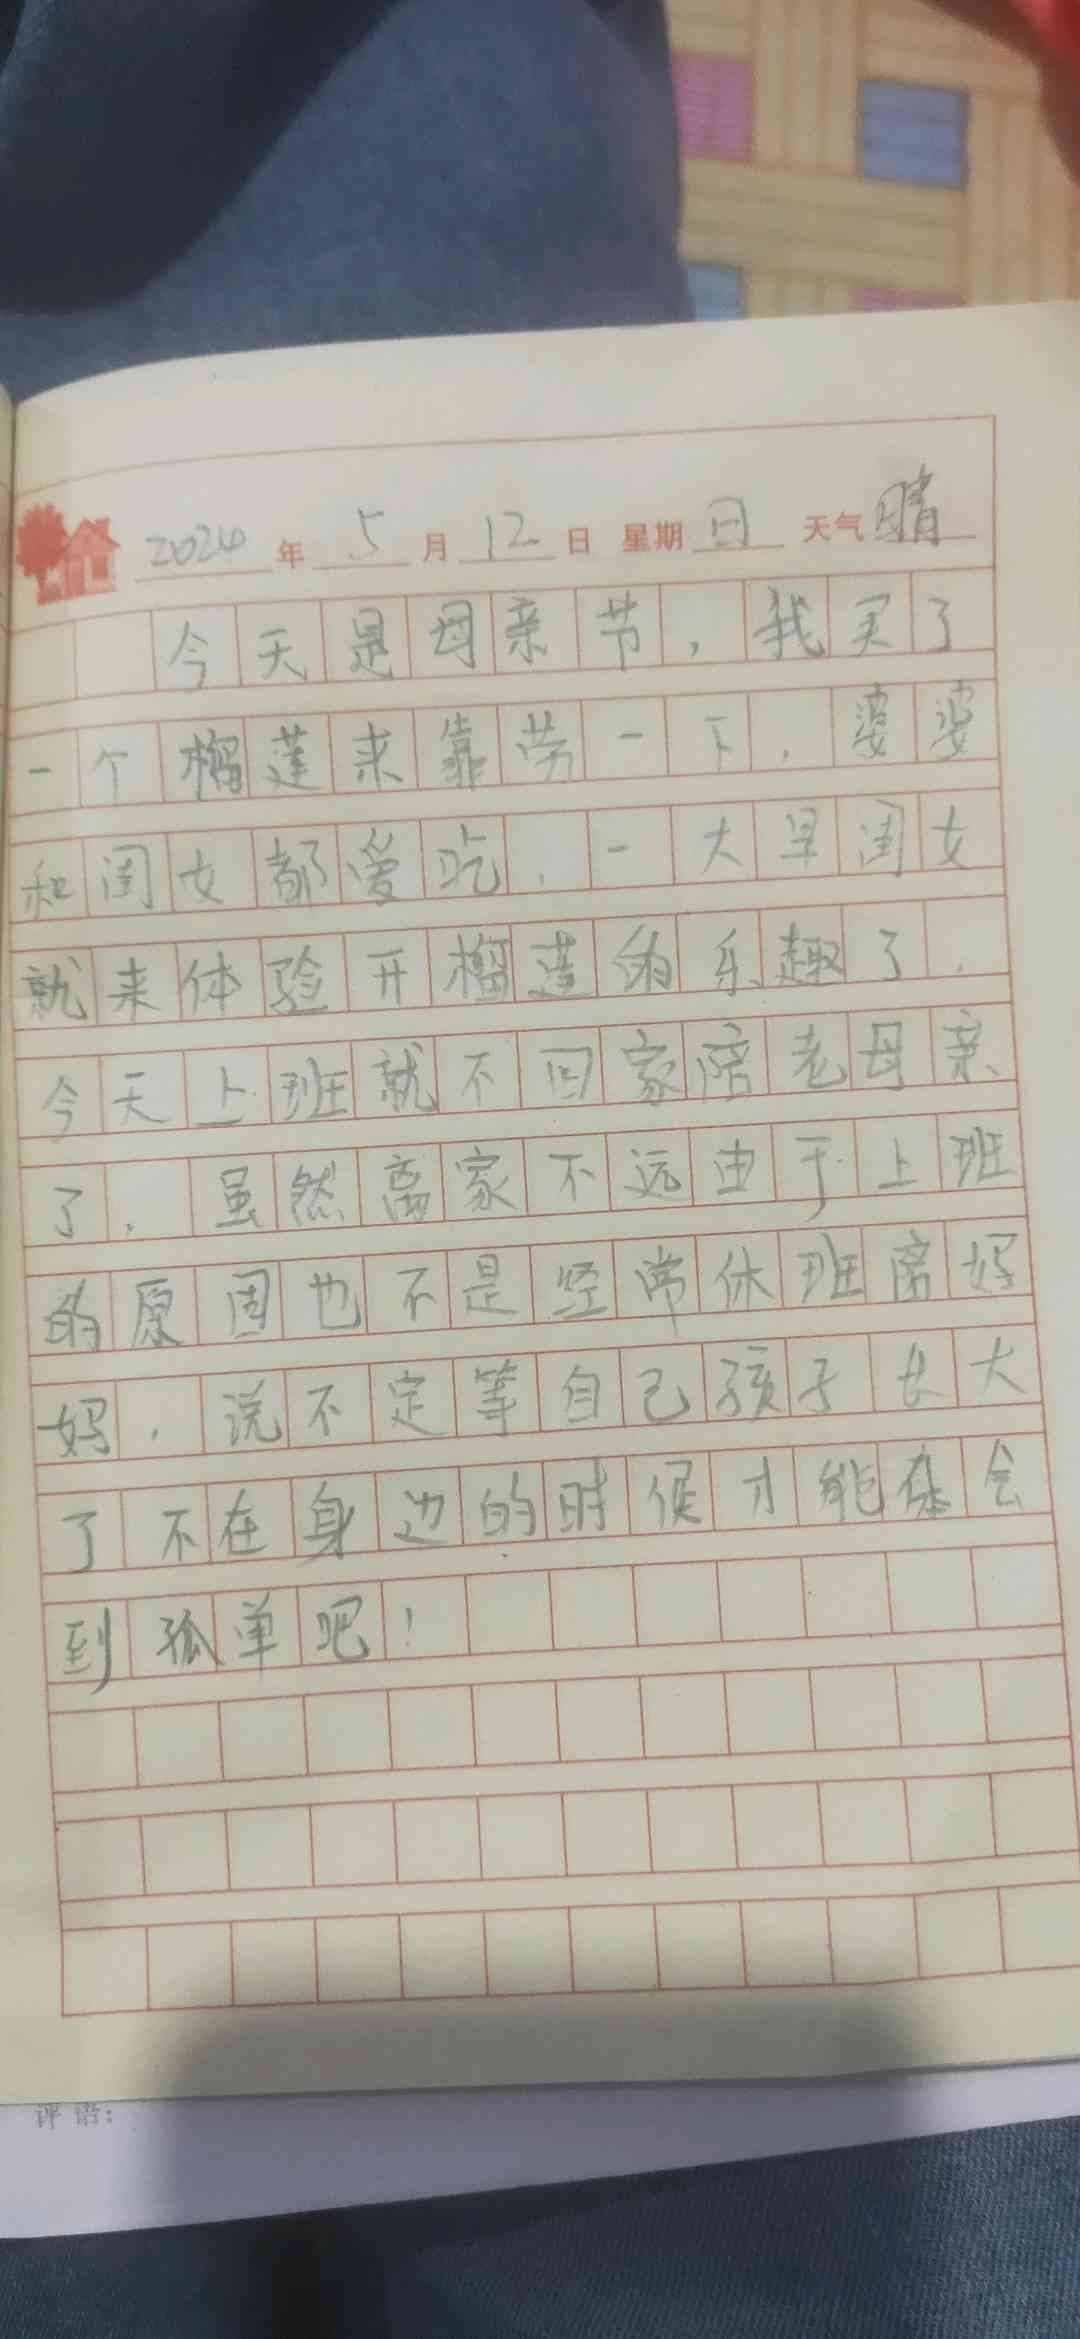 2024年5月12日 星期日 天气晴
今天是母亲节，我买了
一个榴莲来靠劳一下，婆婆
和闺女都爱吃，一大早闺女
就来体验开榴莲的乐趣了，
今天上班就不回家陪老母亲
了，虽然离家不远由于上班
的原因也不是经常休班离妈
妈，说不定等自己孩子长大
了不在身边的时候才能体会
到孤单吧！
评语：